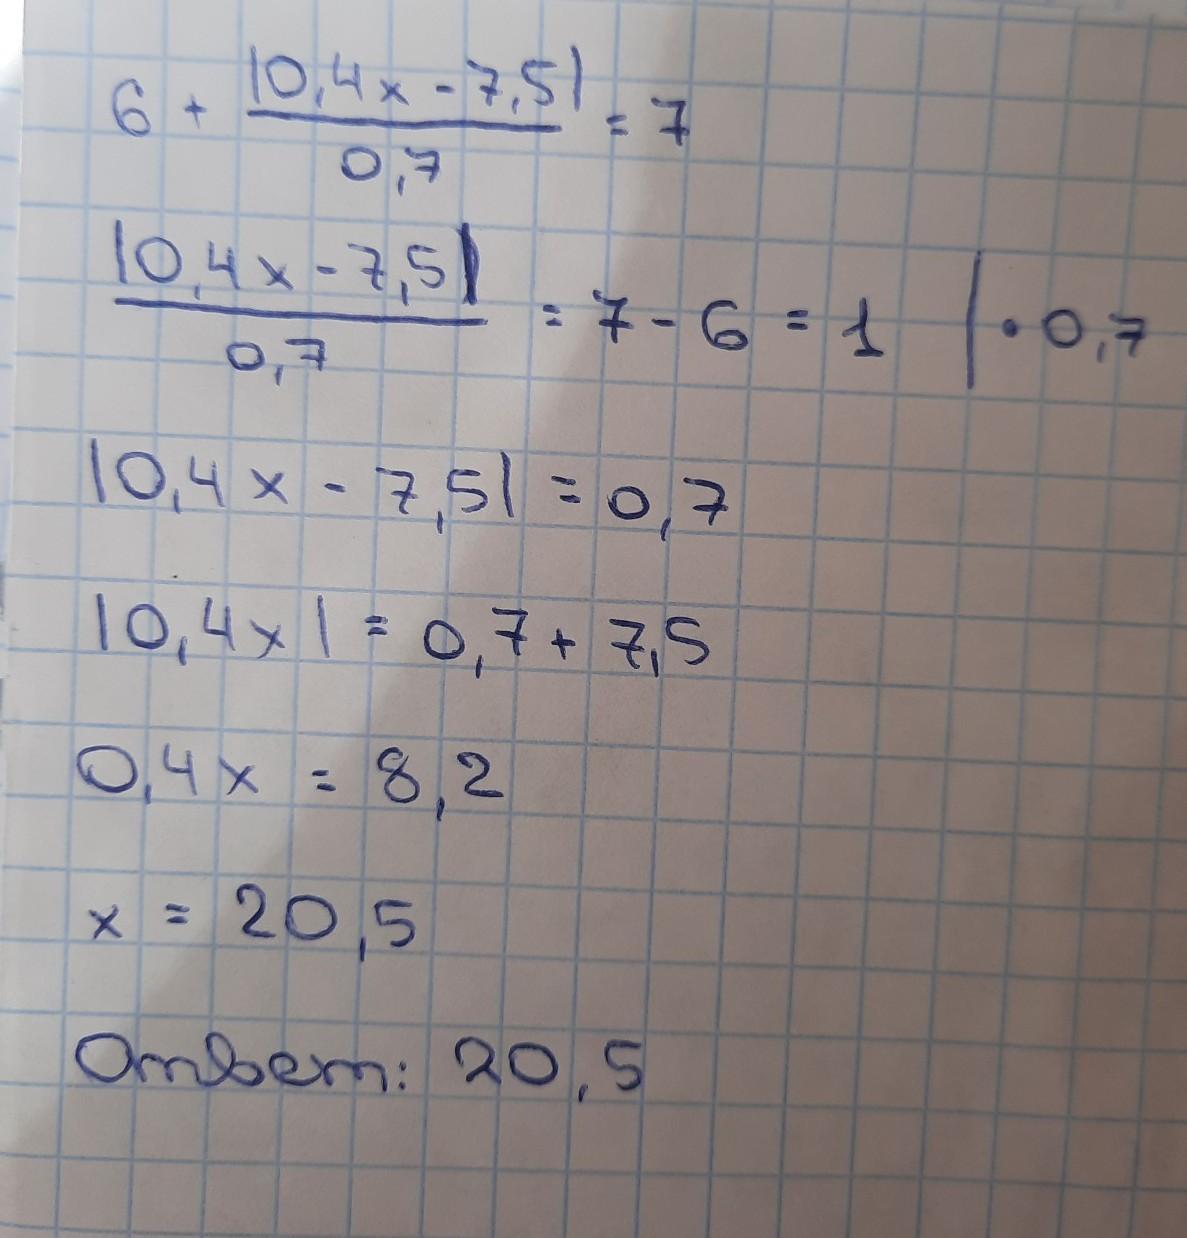 6 + |0,4x - 7,5| / 0,7 = 7
|0,4x - 7,5| / 0,7 = 7 - 6 = 1 | · 0,7
|0,4x - 7,5| = 0,7
|0,4x| = 0,7 + 7,5
0,4x = 8,2
x = 20,5
Ответ: 20,5